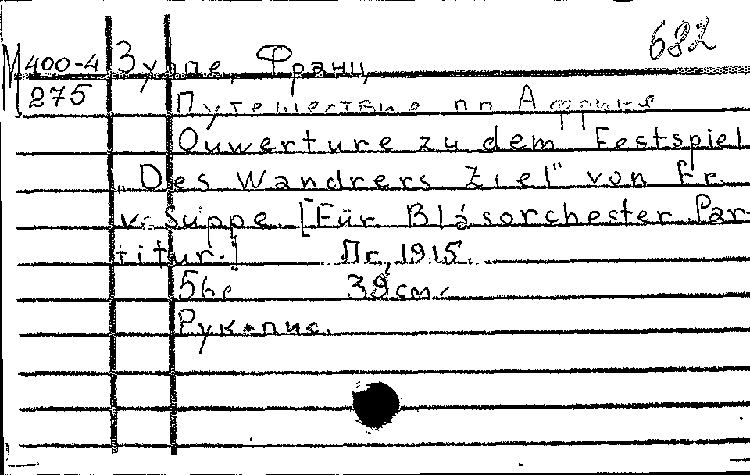 682
М400-4 Зуппе, Франц
275 Путешествие по Африке
Ouwerture zu dem Festspiel
"Des Wandrers Ziel" von Fr.
v. Suppe [Für Blasorchester Par-
titur.] Пг, 1915.
38 cm.
Рукопис.